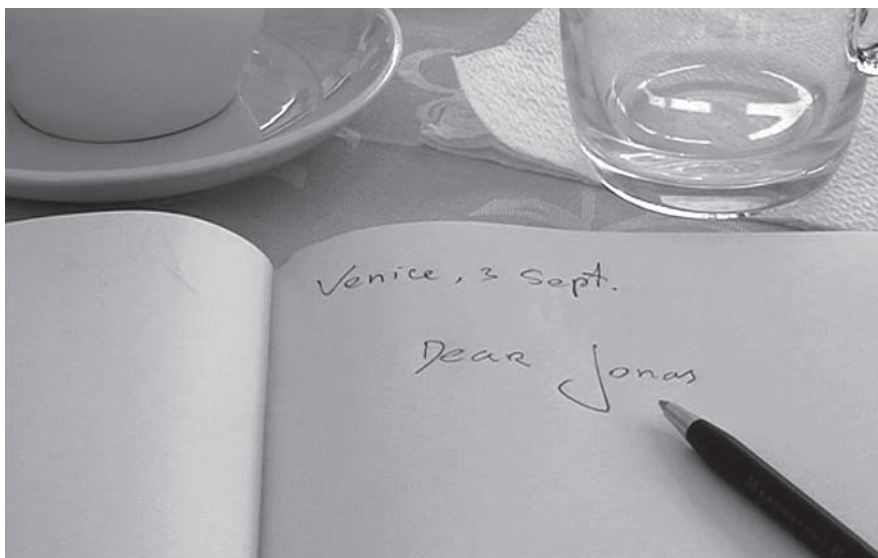 Venice, 3 Sept.
Dear Jonas